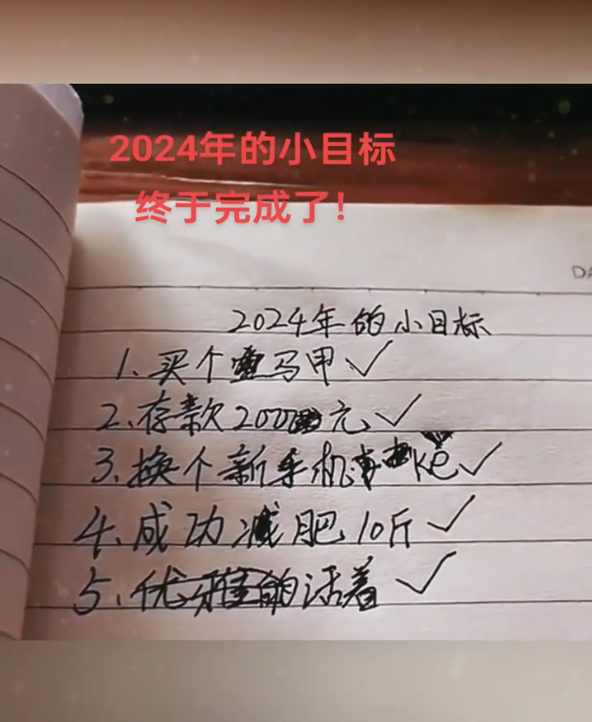 2024年的小目标
终于完成了!
2024年的小目标
1.买个马甲✓
2.存款200元✓
3.换个新手机ké✓
4.成功减肥10斤✓
5.优雅的活着✓